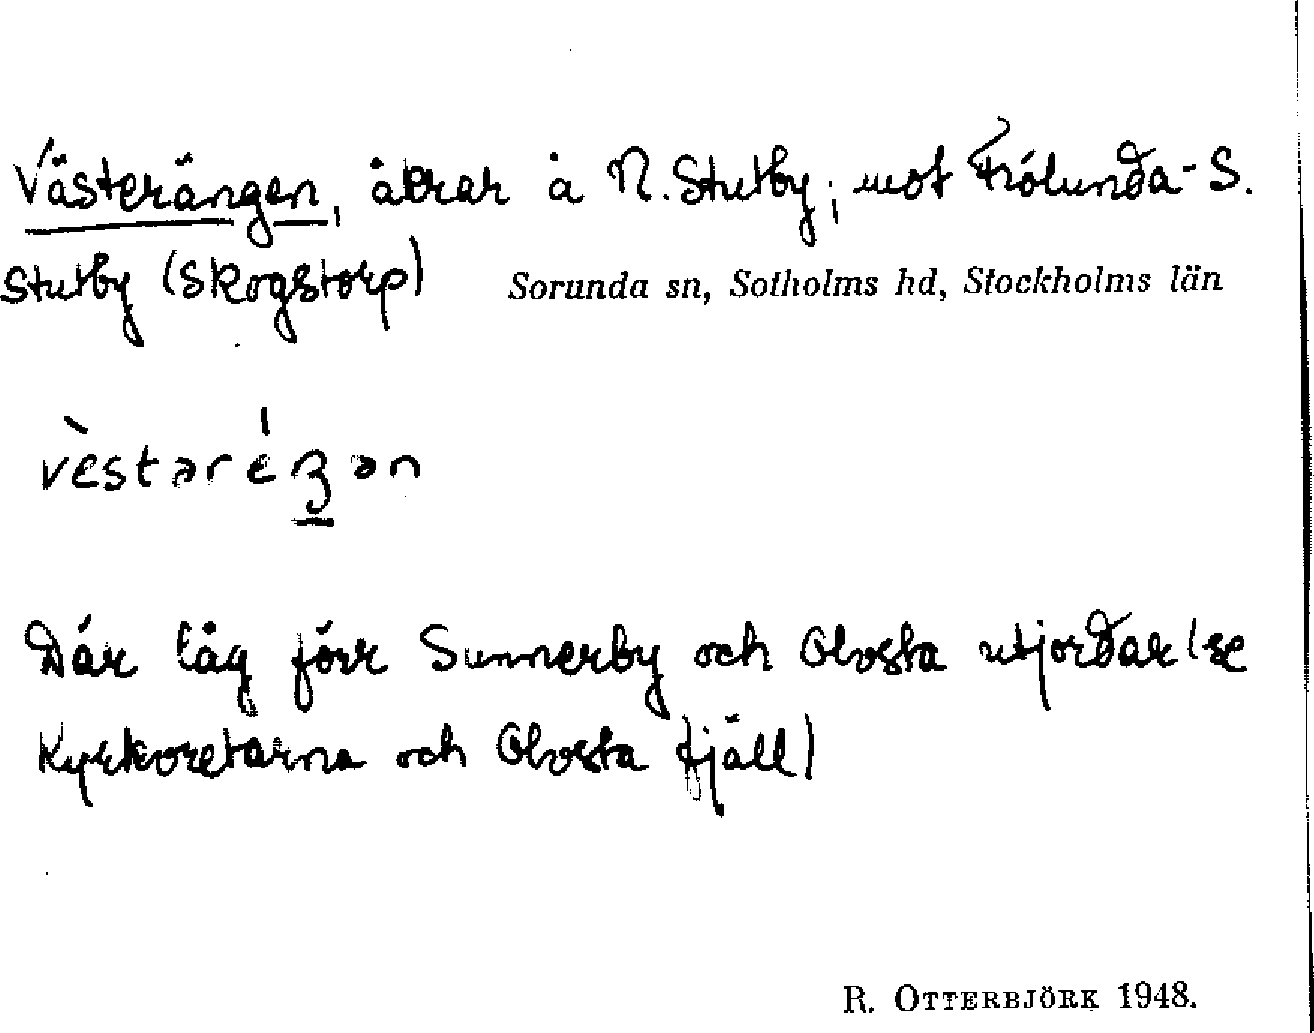 Västerängen, åkrar å N. Stutby; mot Frölunda-S.
Stutby (Skogstorp) Sorunda sn, Sotholms hd, Stockholms län
vèstəréŋən
Där låg förr Sunnerby och Olvsta utjordar (se
Kyrkoretarna och Olvsta fjäll)
R. OTTERBJÖRK 1948.